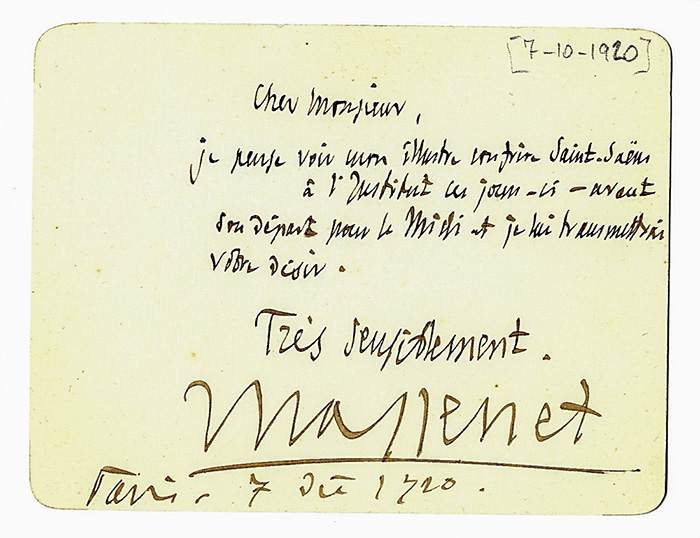 [7-10-1920]
Cher Monsieur,
je pense voir mon illustre confrère Saint-Saëns
à l'Institut ces jours-ci - avant
son départ pour le Midi et je lui transmettrai
votre désir.
Très sensiblement.
Massenet
Paris - 7 1920.